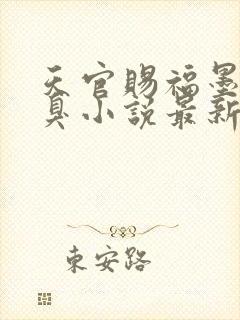 天官賜福墨
臭小說最新
東安路